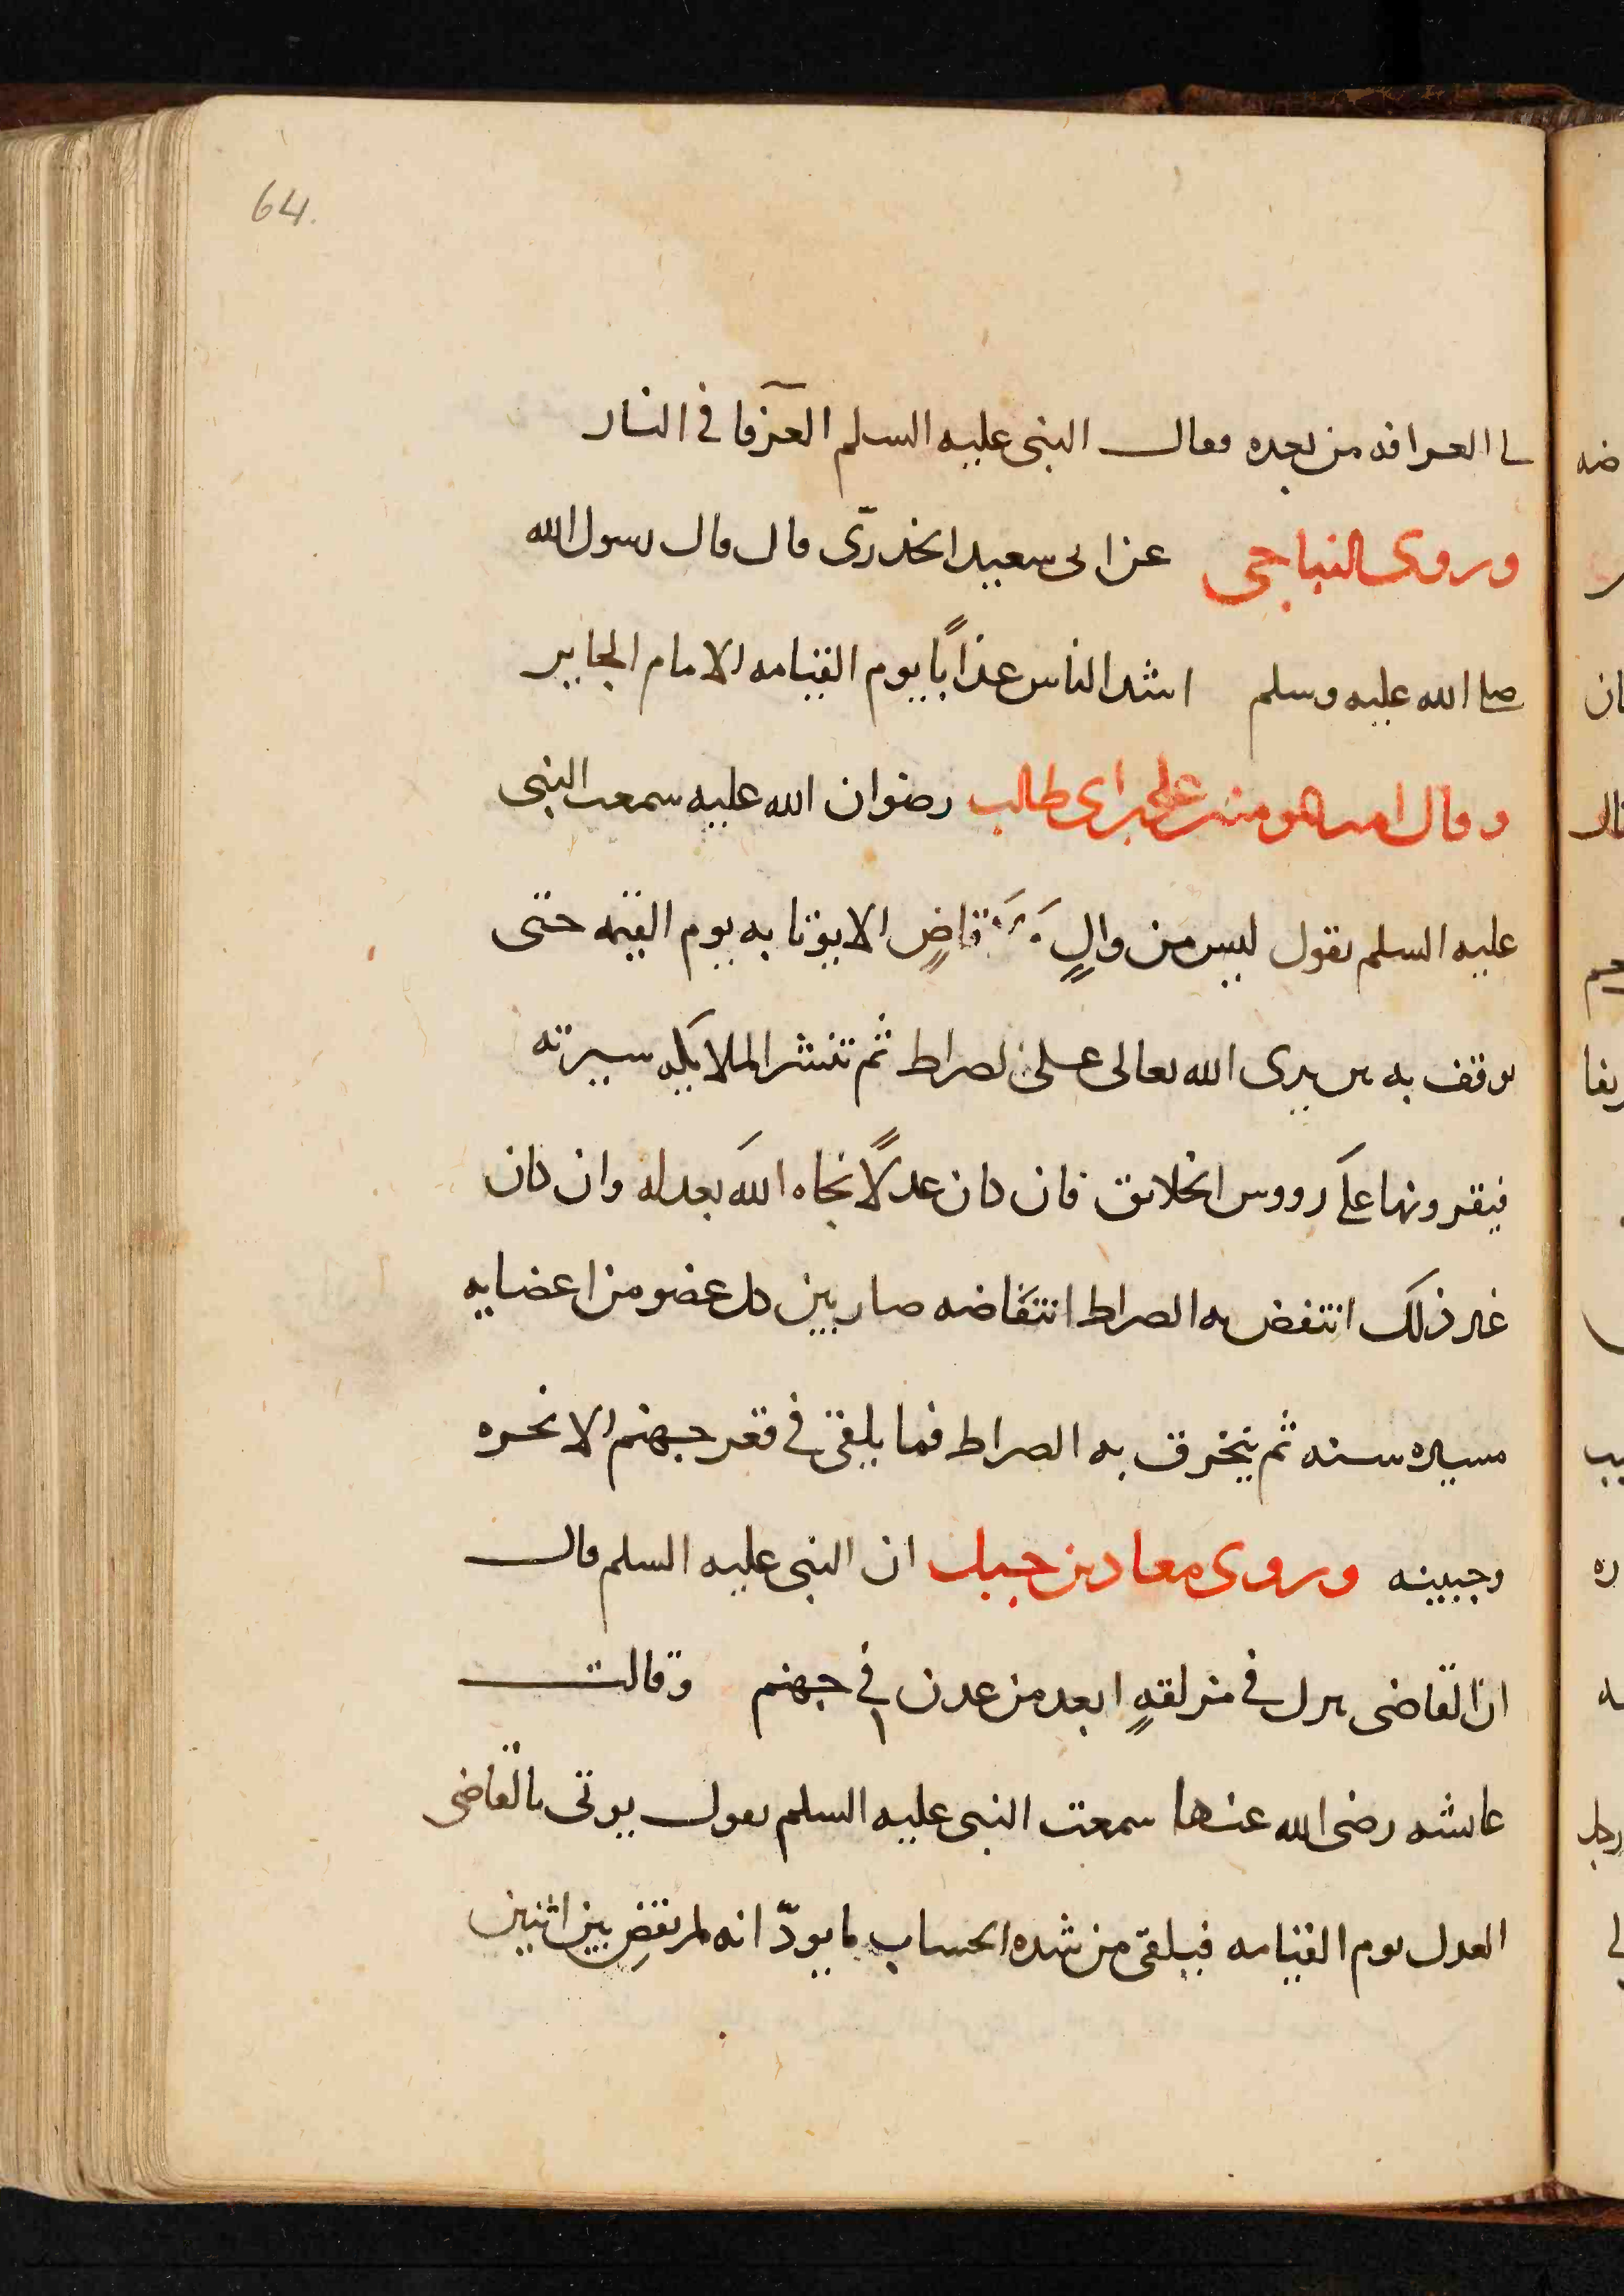 64.
لى العرافه من بعده فقال النبى عليه السلم العرفا فى النار
وروى النباجى عن ابى سعيد الخدرى قال قال رسول الله
صلى الله عليه وسلم اشد الناس عذابًا يوم القيامه الامام الجاير
وقال امير المومنين على بن ابى طالب رضوان الله عليه سمعت النبى
عليه السلم يقول ليس من والٍ قاضٍ الا يوتا به يوم القيمه حتى
يوقف به بين يدى الله تعالى على الصراط ثم تنشر الملايكه سيرته
فيقرونها على رووس الخلايق فان كان عدلًا نجاه الله بعدله وان كان
غير ذلك انتفض به الصراط انتفاضه صار بين كل عضو من اعضايه
مسيره سنه ثم ينخرق به الصراط فما يلقى فى قعر جهنم الا نحره
وجبينه وروى معاد بن جبل ان النبى عليه السلم قال
ان القاضى يزل فى مزلقهٍ ابعد من عدن فى جهنم وقالت
عايشه رضى الله عنها سمعت النبى عليه السلم يقول يوتى بالقاضى
العدل يوم القيامه فيلقى من شده الحساب ما يودّ انه لم يقضِ بين اثنين
ضه
ان
قال
ريفا
يب
ره
رجل